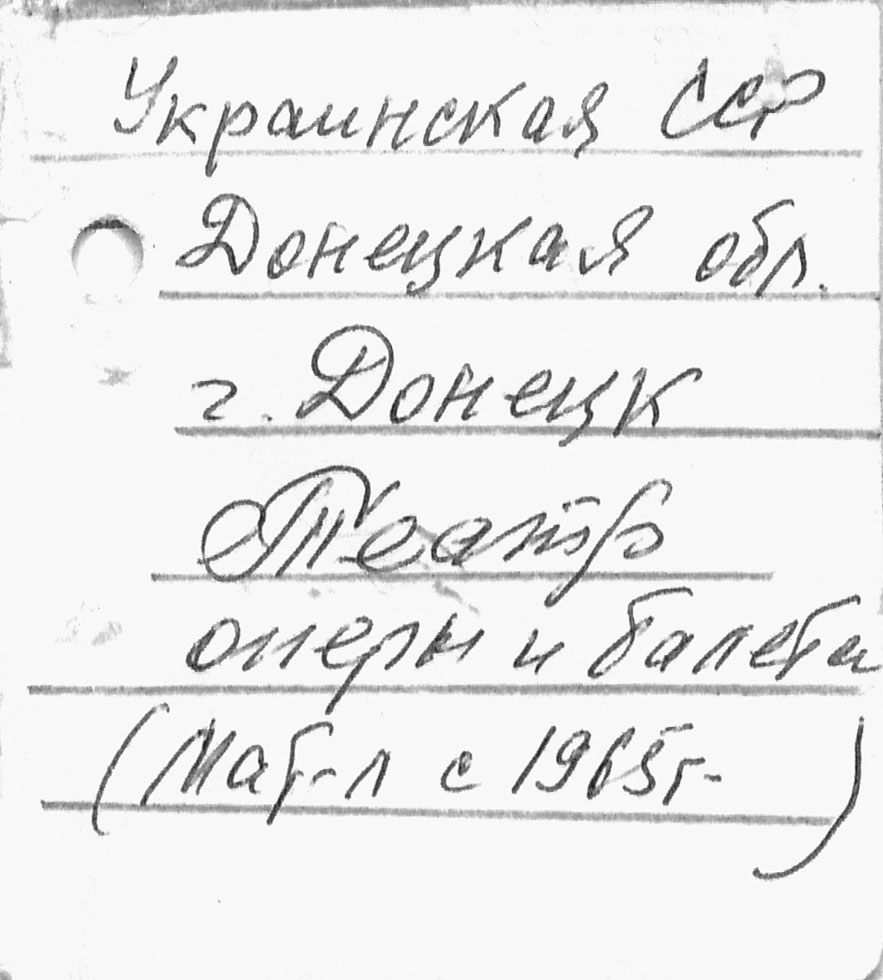 Украинская ССР
Донецкая обл.
г. Донецк
Театр
оперы и балета
(Мат-л с 1965г.)